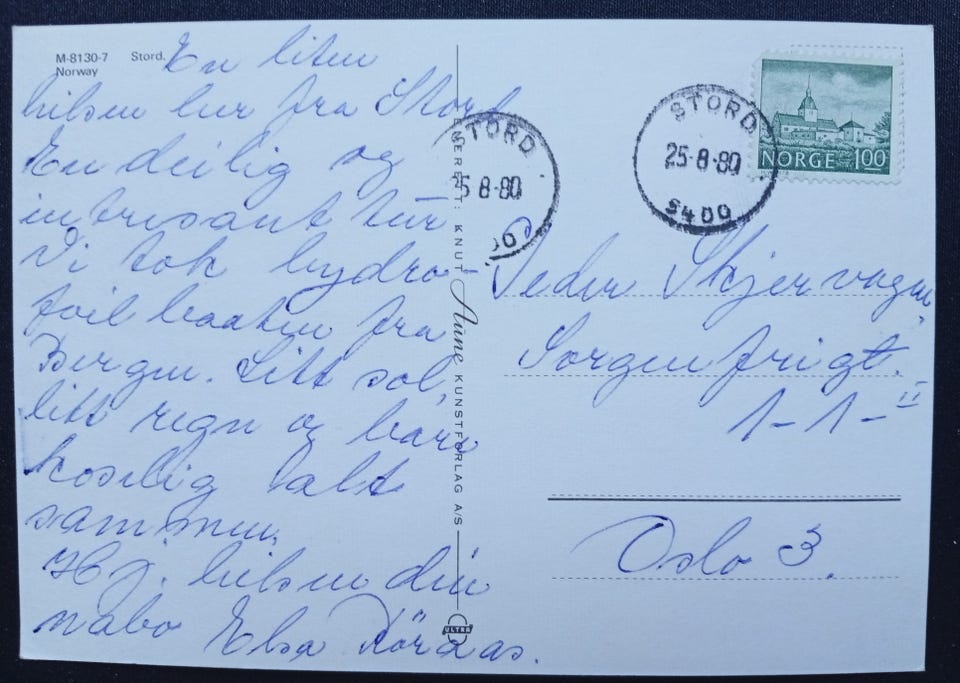 M-8130-7 Stord.
Norway
En liten
hilsen her fra Stord
En deilig og
intresant tur
Vi tok hydro-
foil baaten fra
Bergen. Litt sol,
litt regn og bare
koselig alt
sammen.
Hj. hilsen din
nabo Elsa
ENERET: KNUT Aune KUNSTFORLAG A/S
ULTRA
STORD
25 8·80
STORD
25·8·80
5400
NORGE 100
Peder Skjervagen
Sorgenfrigt.
1-1-II
Oslo 3.